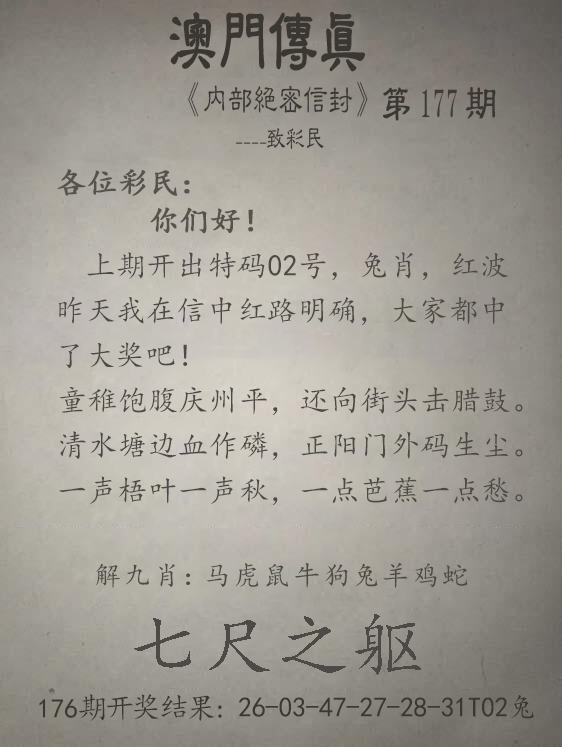 澳門傳真
《内部絕密信封》第177期
----致彩民
各位彩民：
你们好！
上期开出特码02号，兔肖，红波
昨天我在信中红路明确，大家都中
了大奖吧！
童稚饱腹庆州平，还向街头击腊鼓。
清水塘边血作磷，正阳门外码生尘。
一声梧叶一声秋，一点芭蕉一点愁。
解九肖：马虎鼠牛狗兔羊鸡蛇
七尺之躯
176期开奖结果：26-03-47-27-28-31T02兔